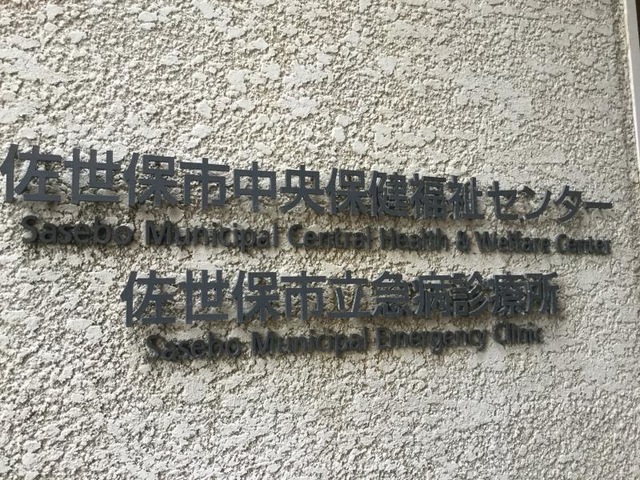 佐世保市中央保健福祉センター
Sasebo Municipal Central Health & Welfare Center
佐世保市立急病診療所
Sasebo Municipal Emergency Clinic